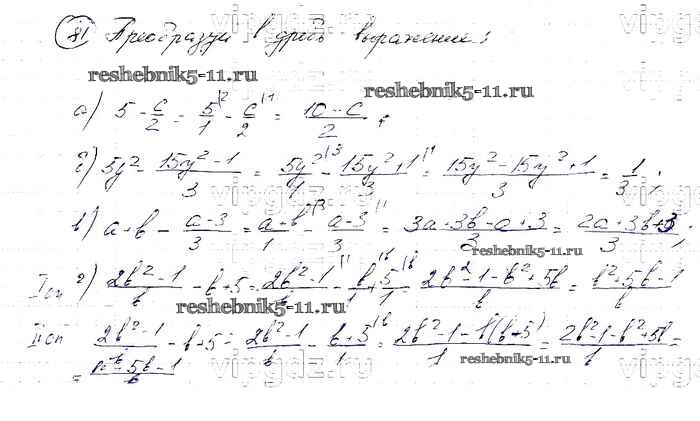 81 Преобразуй в дробь выражение:
reshebnik5-11.ru
reshebnik5-11.ru
а) 5 - c/2 = 5/1 - c/2 = (10 - c)/2 ;
б) 5y² - (15y² - 1)/3 = 5y²/1 - (15y² + 1)/3 = (15y² - 15y² + 1)/3 = 1/3 ;
в) a + b - (a - 3)/3 = (a + b)/1 - (a - 3)/3 = (3a + 3b - a + 3)/3 = (2a + 3b + 3)/3
reshebnik5-11.ru
I сп г) (2b² - 1)/b - b + 5 = (2b² - 1)/b - (b + 5)/1 = (2b² - 1 - b² + 5b)/b = (b² + 5b - 1)/b
reshebnik5-11.ru
II сп (2b² - 1)/b - b + 5 = (2b² - 1)/b - (b + 5)/1 = (2b² - 1 - b(b + 5))/1 = (2b² - 1 - b² + 5b)/b =
reshebnik5-11.ru
= (b² + 5b - 1)/b
vipgdz.ru